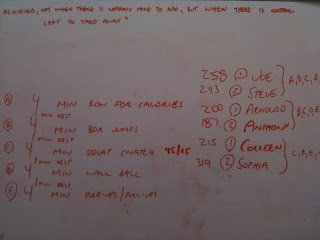 ACHIEVED, NOT WHEN THERE IS NOTHING MORE TO ADD, BUT WHEN THERE IS NOTHING
LEFT TO TAKE AWAY"
258 ① JOE
293 ② STEVE
A, B, C, D,
Ⓐ 4 MIN ROW FOR CALORIES
1 MIN REST
200 ① ARNOLDO
187 ② ANTHONY
B, C, D, E
Ⓑ 4 MIN BOX JUMPS
1 MIN REST
Ⓒ 4 MIN SQUAT SNATCH 45/25
1 MIN REST
215 ① COLLEEN
319 ② SOPHIA
C, D, E,
Ⓓ 4 MIN WALL BALL
1 MIN REST
Ⓔ 4 MIN /PULL-UPS